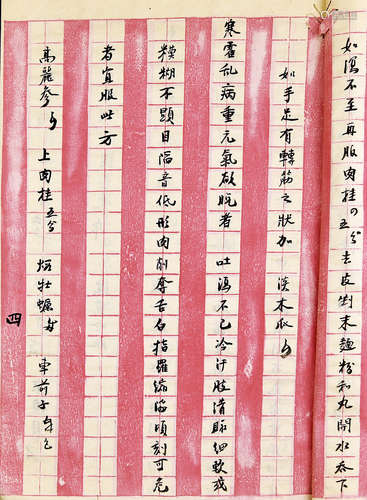 如瀉不至再服肉桂 五分去皮剉末麵粉和丸開水吞下
如手足有轉筋之狀加 淡木瓜
寒霍亂病重元氣欲脫者 吐瀉不已冷汗肢清脈細軟或
模糊不顯目陷音低形肉削奪舌白指羅縮 頃刻可危
者宜服此方
高麗參 上肉桂五分 煅牡蠣 車前子
四